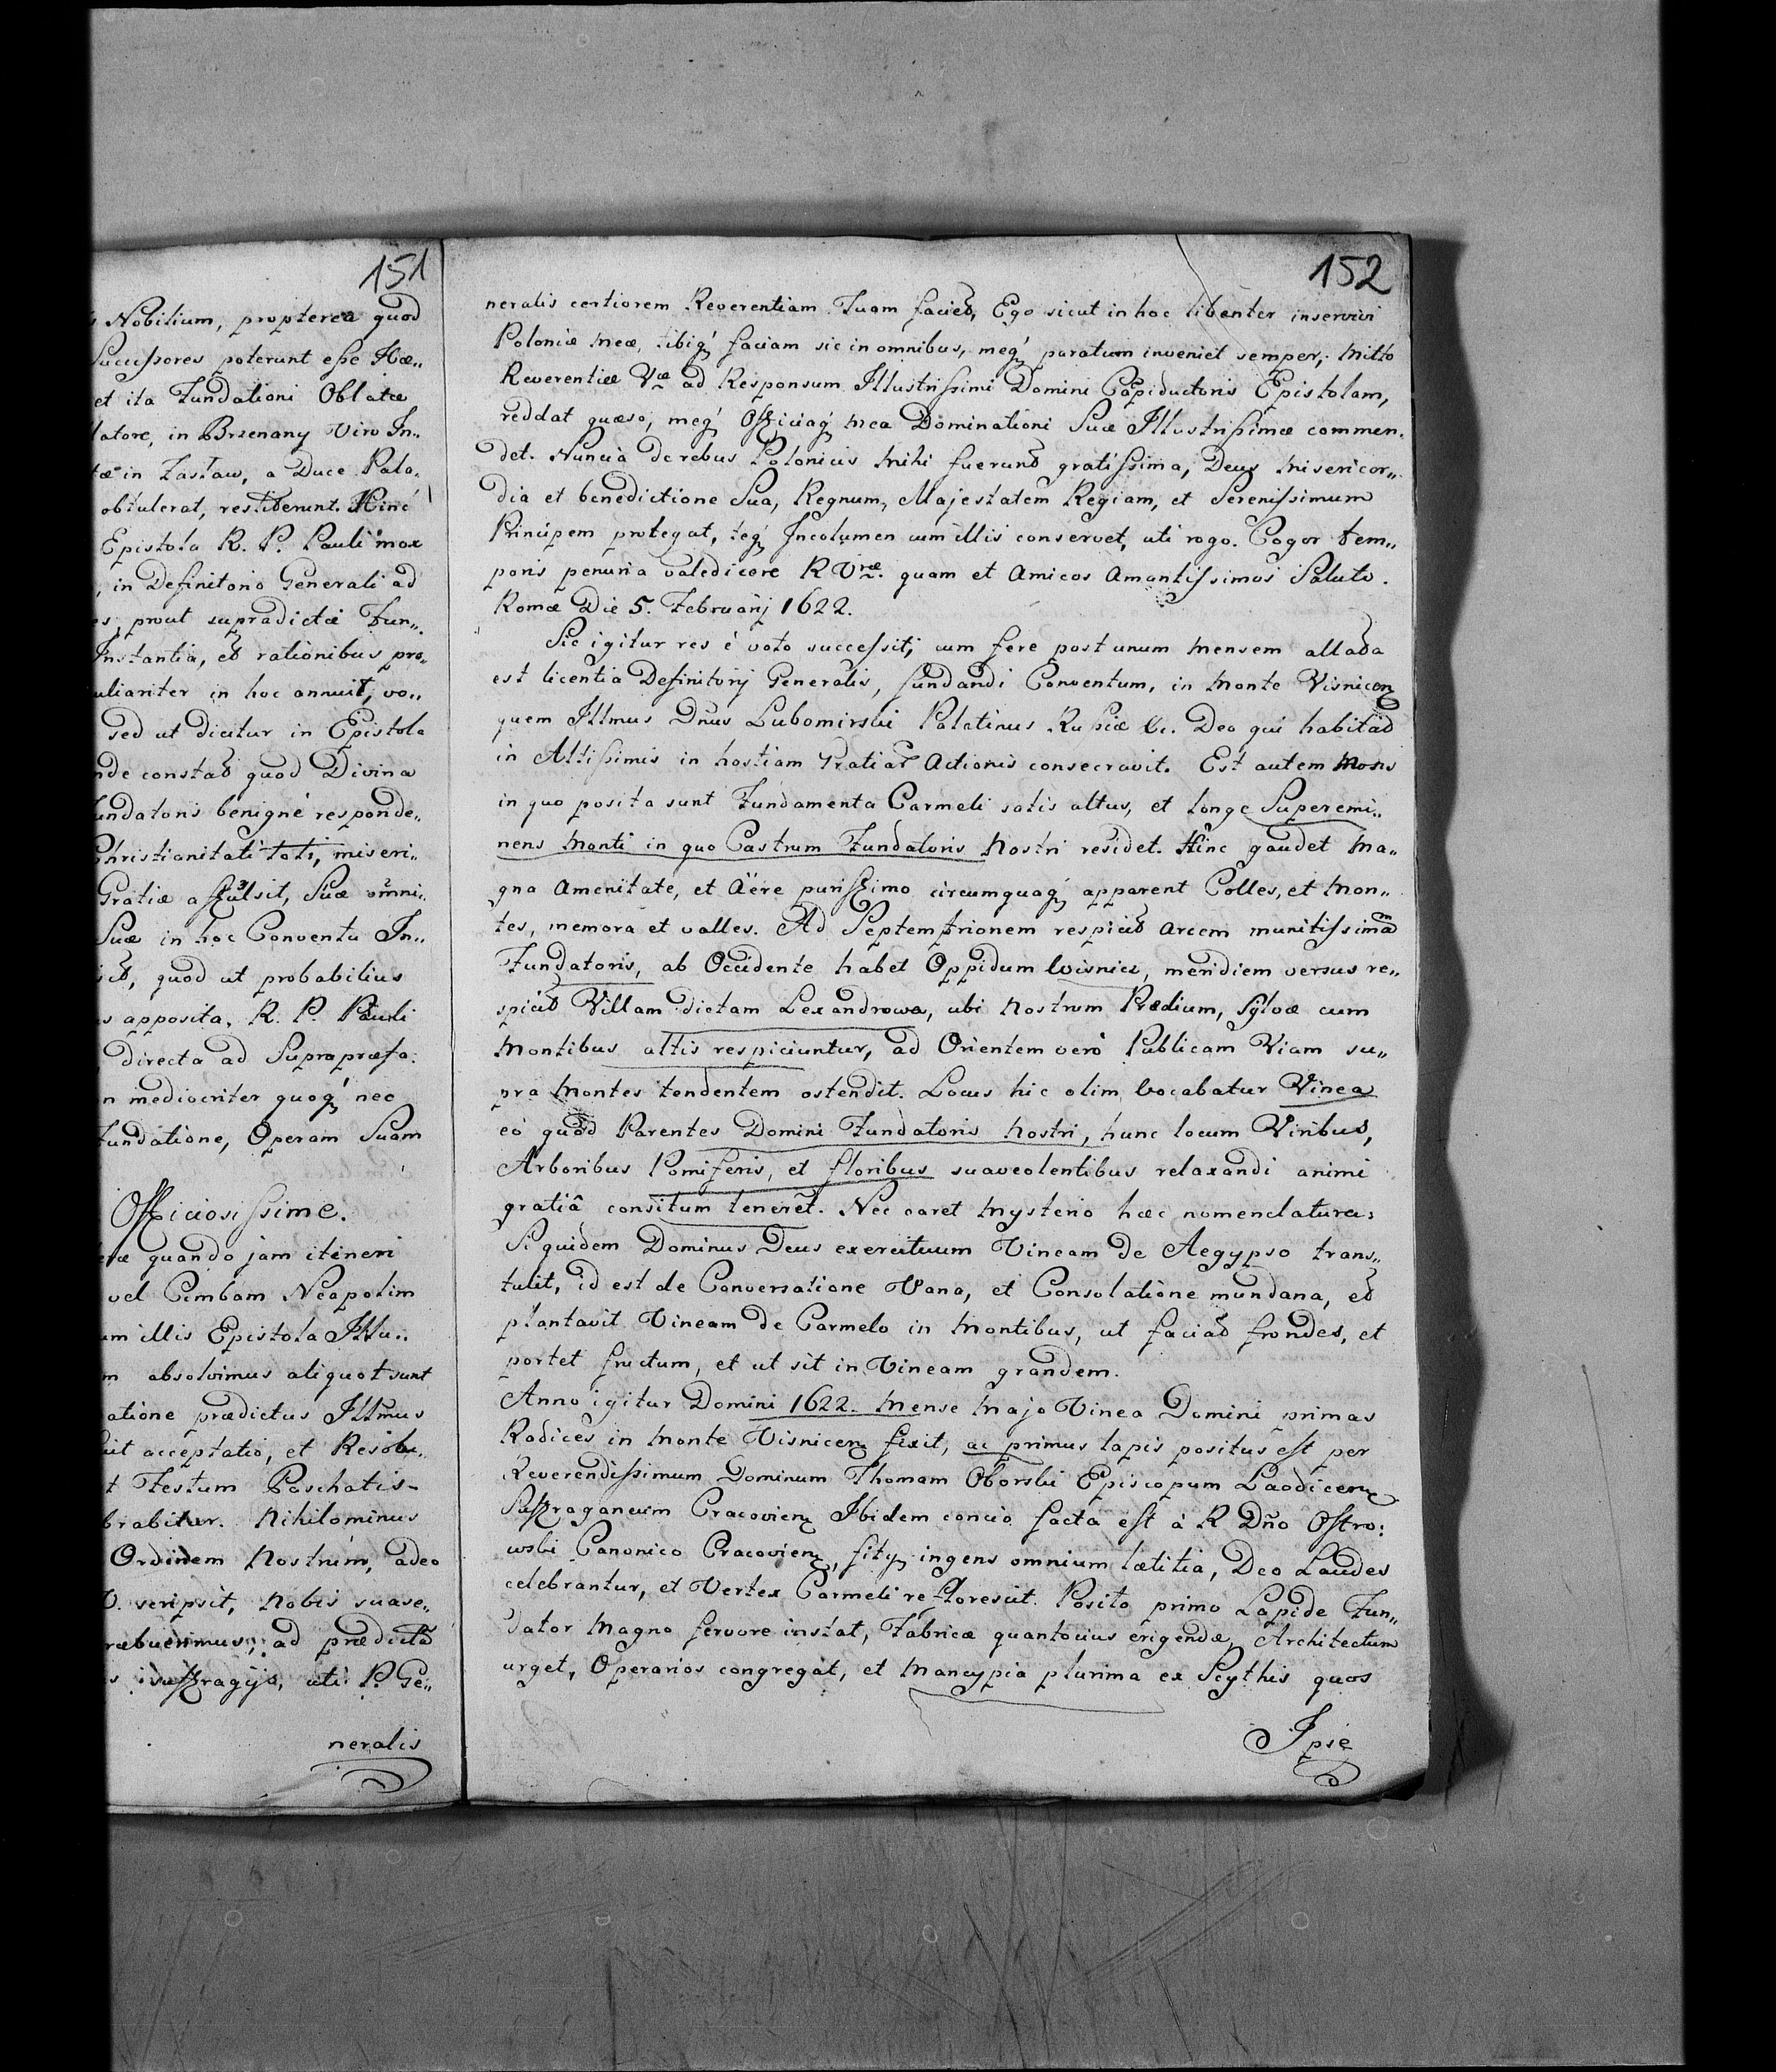 151
Nobilium, propterea quod
Successores poterunt esse Hæ„
et ita Fundationi Oblatæ
latore, in Brzenany Viro In„
tæ in Zasław, a Duce Pala„
obtulerat, restiterunt. Hinc
Epistola R. P. Pauli mox
, in Definitorio Generali ad
es, prout supradictæ Fun„
Instantia, et rationibus pro„
uliariter in hoc annuit, vo„
sed ut dicitur in Epistola
nde constat quod Divina
undatoris benigné responde„
Christianitati toti, miseri„
Gratiæ affulsit, Suæ omni„
Suæ in hoc Conventu In„
cit, quod ut probabilius
s apposita, R. P. Pauli
directa ad Supra præfa:
n mediocriter quoq́ nec
Fundatione, Operam Suam
Officiosissime.
quando jam itineri
vel Cimbam Neapolim
um illis Epistola Illu„
m absolvimus aliquot sunt
atione prædictus Illmus
uit acceptatio, et Resolu„
t Festum Paschatis
brabitur. Nihilominus
Ordinem Nostrum, adeo
V. scripsit, nobis suase„
ræbuerimus, ad prædictã
s suffragijs, uti P. Ge„
neralis
152
neralis certiorem Reverentiam Tuam faciet, Ego sicut in hoc libenter inservivi
Poloniæ meæ, tibiq́ faciam sic in omnibus, meq́ paratum inveniet semper; Mitto
Reverentiæ Væ ad Responsum Illustrissimi Domini Capiductoris Epistolam,
reddat quæso, meq́ Officiaq́ mea Dominationi Suæ Illustrissimæ commen„
det. Nuncia de rebus Polonicis mihi fuerunt gratissima, Deus misericor„
dia et benedictione Sua, Regnum, Majestatem Regiam, et Serenissimum
Principem protegat, teq́ Incolumen cum illis conservet, uti rogo. Cogor tem„
poris penuria valedicere R Vræ. quam et Amicos Amantissimos Saluto.
Romæ Die 5. Februarij 1622.
Sic igitur res é voto successit; cum fere post unum mensem allata
est licentia Definitorij Generalis, fundandi Conventum, in Monte Visnicen
quem Illmus Dñus Lubomirski Palatinus Russiæ &c. Deo qui habitat
in Altissimis in hostiam Gratiar̃ Actionis consecravit. Est autem Mons
in quo posita sunt Fundamenta Carmeli satis altus, et longe Superemi„
nens Monti in quo Castrum Fundatoris Nostri residet. Hinc gaudet ma„
gna Amenitate, et Äére purissimo circumquaq́ apparent Colles, et Mon„
tes, memora et valles. Ad Septemptrionem respicit Arcem munitissimã
Fundatoris, ab Occidente habet Oppidum Wisnicz, meridiem versus re„
spicit Villam dictam Lexandrowa, ubi Nostrum Prædium, Sylvæ cum
Montibus altis respiciuntur, ad Orientem verò Publicam Viam su„
pra Montes tendentem ostendit. Locus hic olim Vocabatur Vinea
eò quod Parentes Domini Fundatoris Nostri, hunc locum Viribus,
Arboribus Pomiferis, et floribus suaveolentibus relaxandi animi
gratiâ consitum teneret. Nec caret Mysterio hæc nomenclatura:
Si quidem Dominus Deus exercituum Vineam de Aegypso trans„
tulit, id est de Conversatione Vana, et Consolatione mundana, et
plantavit Vineam de Carmelo in Montibus, ut faciat frondes, et
portet fructum, et ut sit in Vineam grandem.
Anno igitur Domini 1622. Mense Majo Vinea Domini primas
Radices in Monte Visnicen fixit, ac primus lapis positus est per
Reverendissimum Dominum Thomam Oborski Episcopum Laodicen
Suffraganeum Cracovien Ibidem concio facta est à R Dño Ostro:
wski Canonico Cracovien, fitq ingens omnium lætitia, Deo Laudes
celebrantur, et Vertex Carmeli reflorescit. Posito primo Lapide Fun„
dator Magno fervore instat, Fabricæ quantocius erigendæ, Architectum
urget, Operarios congregat, et Mancypia plurima ex Scythis quos
Ipse